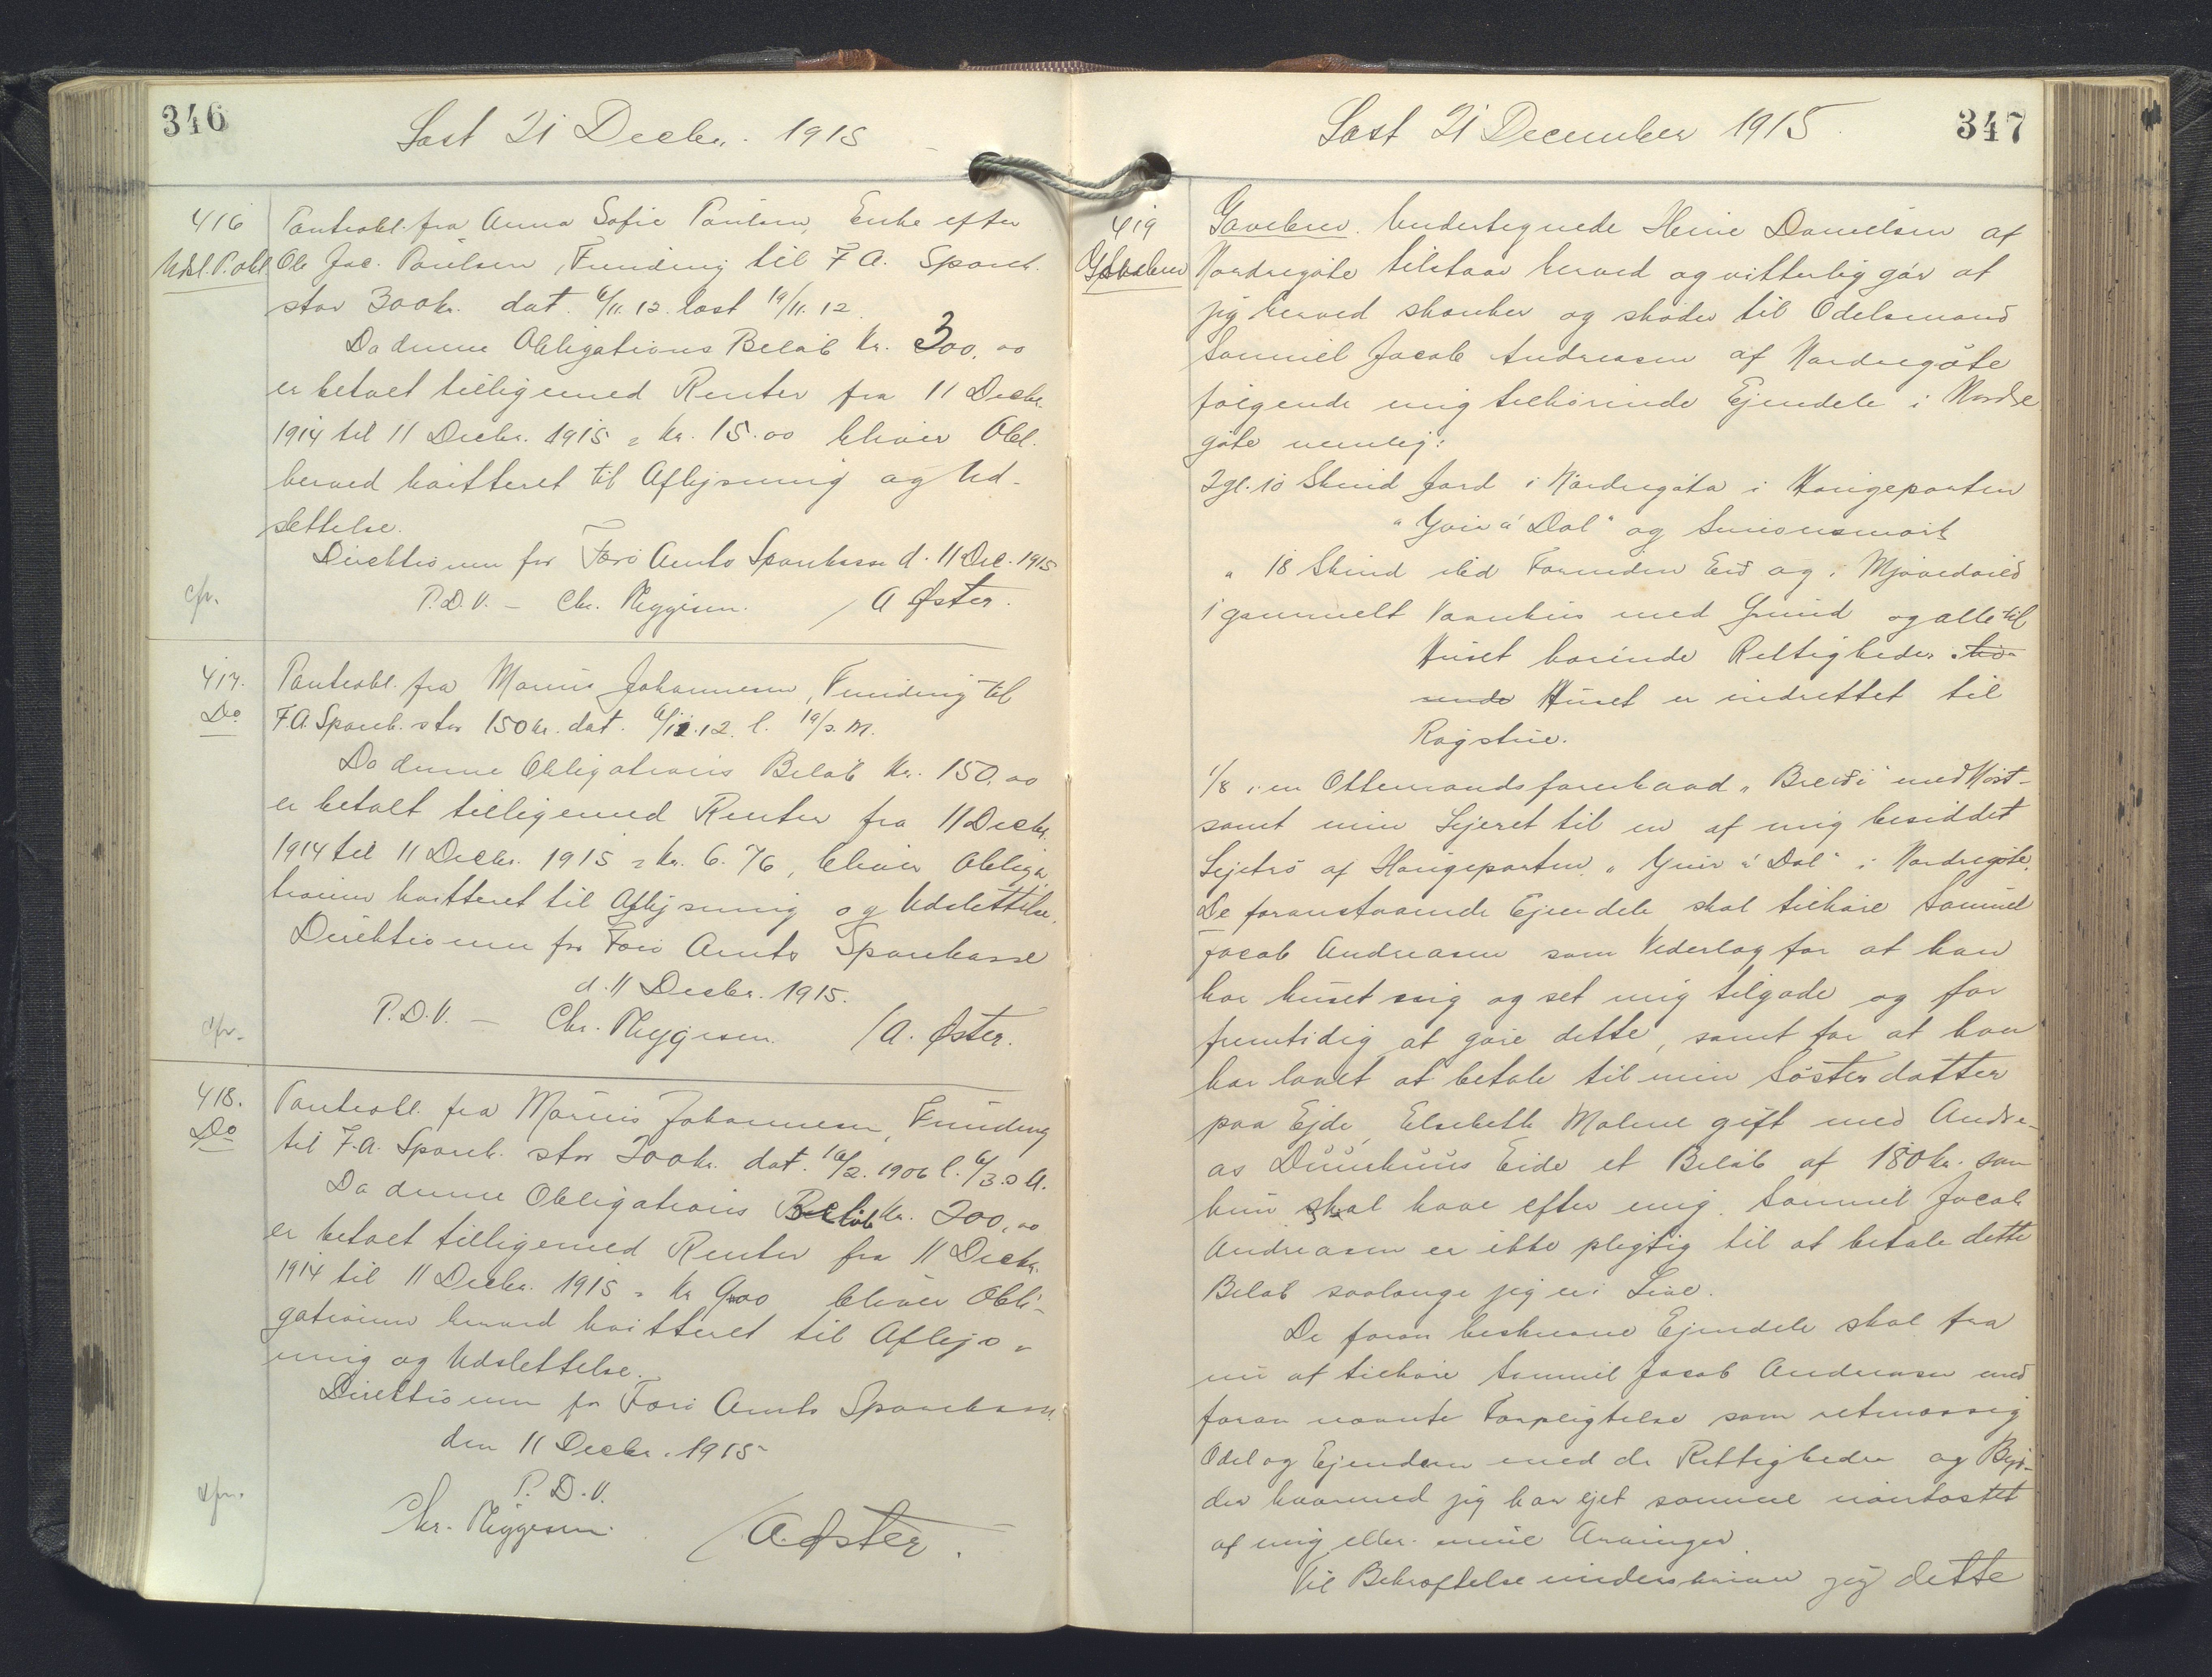 346
Læst 21 Decbr. 1915
416
Udsl. P. obl.
Panteobl. fra Anna Sofie Paulsen, Enke efter
Ole Jac. Paulsen, Funding til F. A. Spareb.
stor 300 kr. dat. 6/11. 12. læst 19/11. 12.
Da denne Obligations Beløb Kr. 300.00
er betalt tilligemed Renter fra 11 Decbr.
1914 til 11 Decbr. 1915 = kr. 15.00 bliver Obl.
herved kvitteret til Aflysning og Ud-
slettelse.
Direktionen for Færø Amts Sparekasse d. 11 Dec. 1915
cfr.
P. D. V. - Chr. Heggesen. / A Øster.
417.
Do
Panteobl. fra Marius Johannesen, Funding til
F. A. Spareb. stor 150 kr. dat. 6/12. 12. l. 19/s. M.
Da denne Obligations Beløb Kr. 150.00
er betalt tilligemed Renter fra 11 Decbr.
1914 til 11 Decbr. 1915 = kr. 6.76, bliver Obliga-
tionen kvitteret til Aflysning og Udslettelse.
Direktionen for Færø Amts Sparekasse
d. 11 Decbr. 1915.
cfr.
P. D. V. - Chr. Heggesen. / A. Øster.
418.
Do
Panteobl. fra Marius Johannesen, Funding
til F. A. Spareb. stor 200 kr. dat. 16/2. 1906 l. 6/3. s A.
Da denne Obligations Beløb Kr. 200.00
er betalt tilligemed Renter fra 11 Decbr.
1914 til 11 Decbr. 1915 = Kr 9.00 bliver Obli-
gationen herved kvitteret til Aflys-
ning og Udslettelse.
Direktionen for Færø Amts Sparekasse
den 11 Decbr. 1915
P. D. V.
cfr.
Chr. Heggesen. / A. Øster.
347
Læst 21 December 1915.
419
Gavebrev
Gavebrev. Undertegnede Heine Danielsen af
Nordregøte tilstaar herved og vitterlig gør at
jeg herved skænker og skøder til Odelsmand
Samuel Jacob Andreasen af Nordregøte
følgende mig tilhørende Ejendele i Nordre
gøte nemlig:
2 gl. 10 Skind Jord i Nordregøta i Haugeparten
"Yvir á Dal" og Simonsmørk
" 18 Skind ibd Forneden Eið og i
1 gammelt Vaanhus med Grund og alle til
Huset hørende Rettigheder. hø-
rende Huset er indrettet til
Røgstue.
1/8 i en Ottemandsfarerbaad "Breiði" med Nøst-
samt min Lejeret til en af mig besiddet
Lejetrø af Haugeparten "Yvir á Dal" i Nordregøte.
De foranstaaende Ejendele skal tilhøre Samuel
Jacob Andreasen som Vederlag for at han
har huset mig og set mig tilgode og for
fremtidig at gøre dette, samt for at han
har lovet at betale til min Søsterdatter
paa Ejde, Elsebeth Malene gift med Andre-
as Duurhuus Eide et Beløb af 180 kr. som
hun skal have efter mig. Samuel Jacob
Andreasen er ikke pligtig til at betale dette
Beløb saalænge jeg er i Live.
De foran beskrevne Ejendele skal fra
nu af tilhøre Samuel Jacob Andreasen med
foran nævnte Forpligtelse som retmæssig
Odel og Ejendom med de Rettigheder og Byr-
der hvormed jeg har ejet samme uantastet
af mig eller mine Arvinger.
Til Bekræftelse underskriver jeg dette